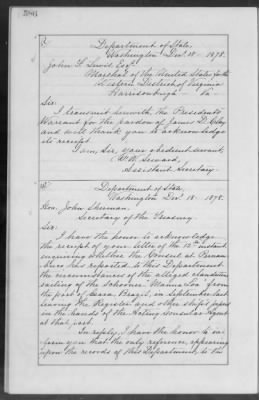 Department of State,
Washington Dec. 18 - 1878.
John F. Lewis Esqr.
Marshal of the United States for the
Western District of Virginia
Harrisonburgh - Va -
Sir:
I transmit herewith, the President's
Warrant for the pardon of James D.
and will thank you to acknowledge
its receipt.
I am, Sir, your obedient servant,
Seward,
Assistant Secretary.
Department of State,
Washington Dec. 18 - 1878.
Hon. John Sherman
Secretary of the Treasury
Sir:
I have the honor to acknowledge
the receipt of your letter of the 12th instant
enquiring whether the Consul at Pernam-
buco has reported, to this Department
the circumstances of the alleged clandestine
sailing of the Schooner
from
the port of Ceara, Brazil, in September last
leaving the Register and other ship's papers
in the hands of the Acting Consular Agent
at that port.
In reply, I have the honor to in-
form you that the only reference appearing
upon the records of this Department, to the